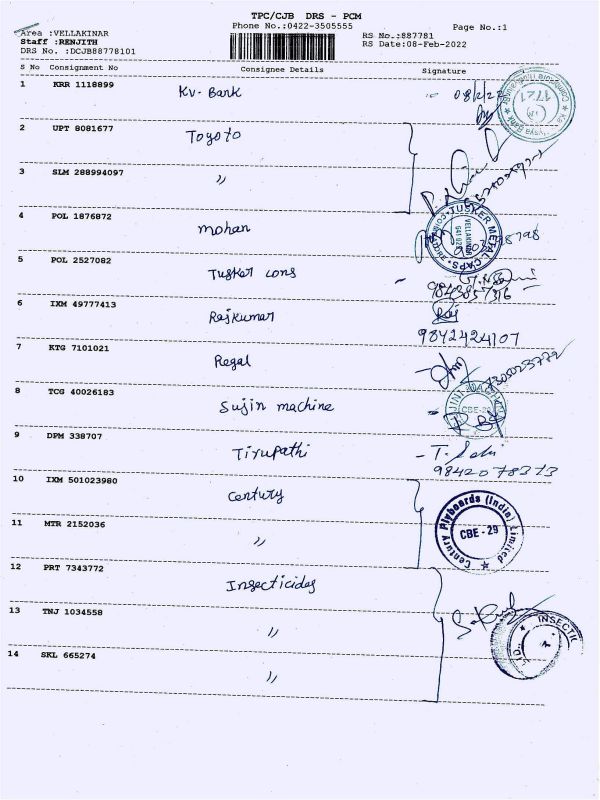 TPC/CJB DRS - PCM
Area :VELLAKINAR Phone No.:0422-3505555 Page No.:1
Staff :RENJITH RS No.:887781
DRS No. :DCJB88778101 RS Date:08-Feb-2022
S No Consignment No Consignee Details Signature
1 KRR 1118899 KV- Bank 08/2/22
2 UPT 8081677 Toyoto
3 SLM 288994097 〃
4 POL 1876872 mohan
TUSKER METAL CAPS
VELLAKINAR
5 POL 2527082 Tusker cons
6 IXM 49777413 Rajkumar Raj
9842424107
7 KTG 7101021 Regal
8 TCG 40026183 Sujin machine
9 DPM 338707 Tirupathi - T.
9842078373
10 IXM 501023980 Century
Century Plyboards (India) Limited
CBE-29
11 MTR 2152036 〃
12 PRT 7343772 Insecticides
13 TNJ 1034558 〃
INSECTI
14 SKL 665274 〃